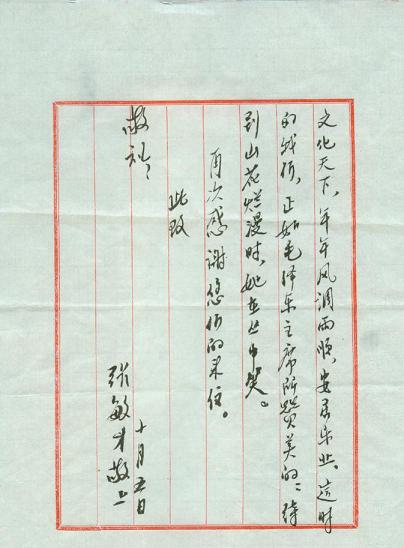 文化天下，年年风调雨顺，安居乐业。这时
的我们，正如毛泽东主席所赞美的：待
到山花烂漫时，她在丛中笑。
再次感谢您们的来信。
此致
敬礼！
张敏才敬上
十月五日